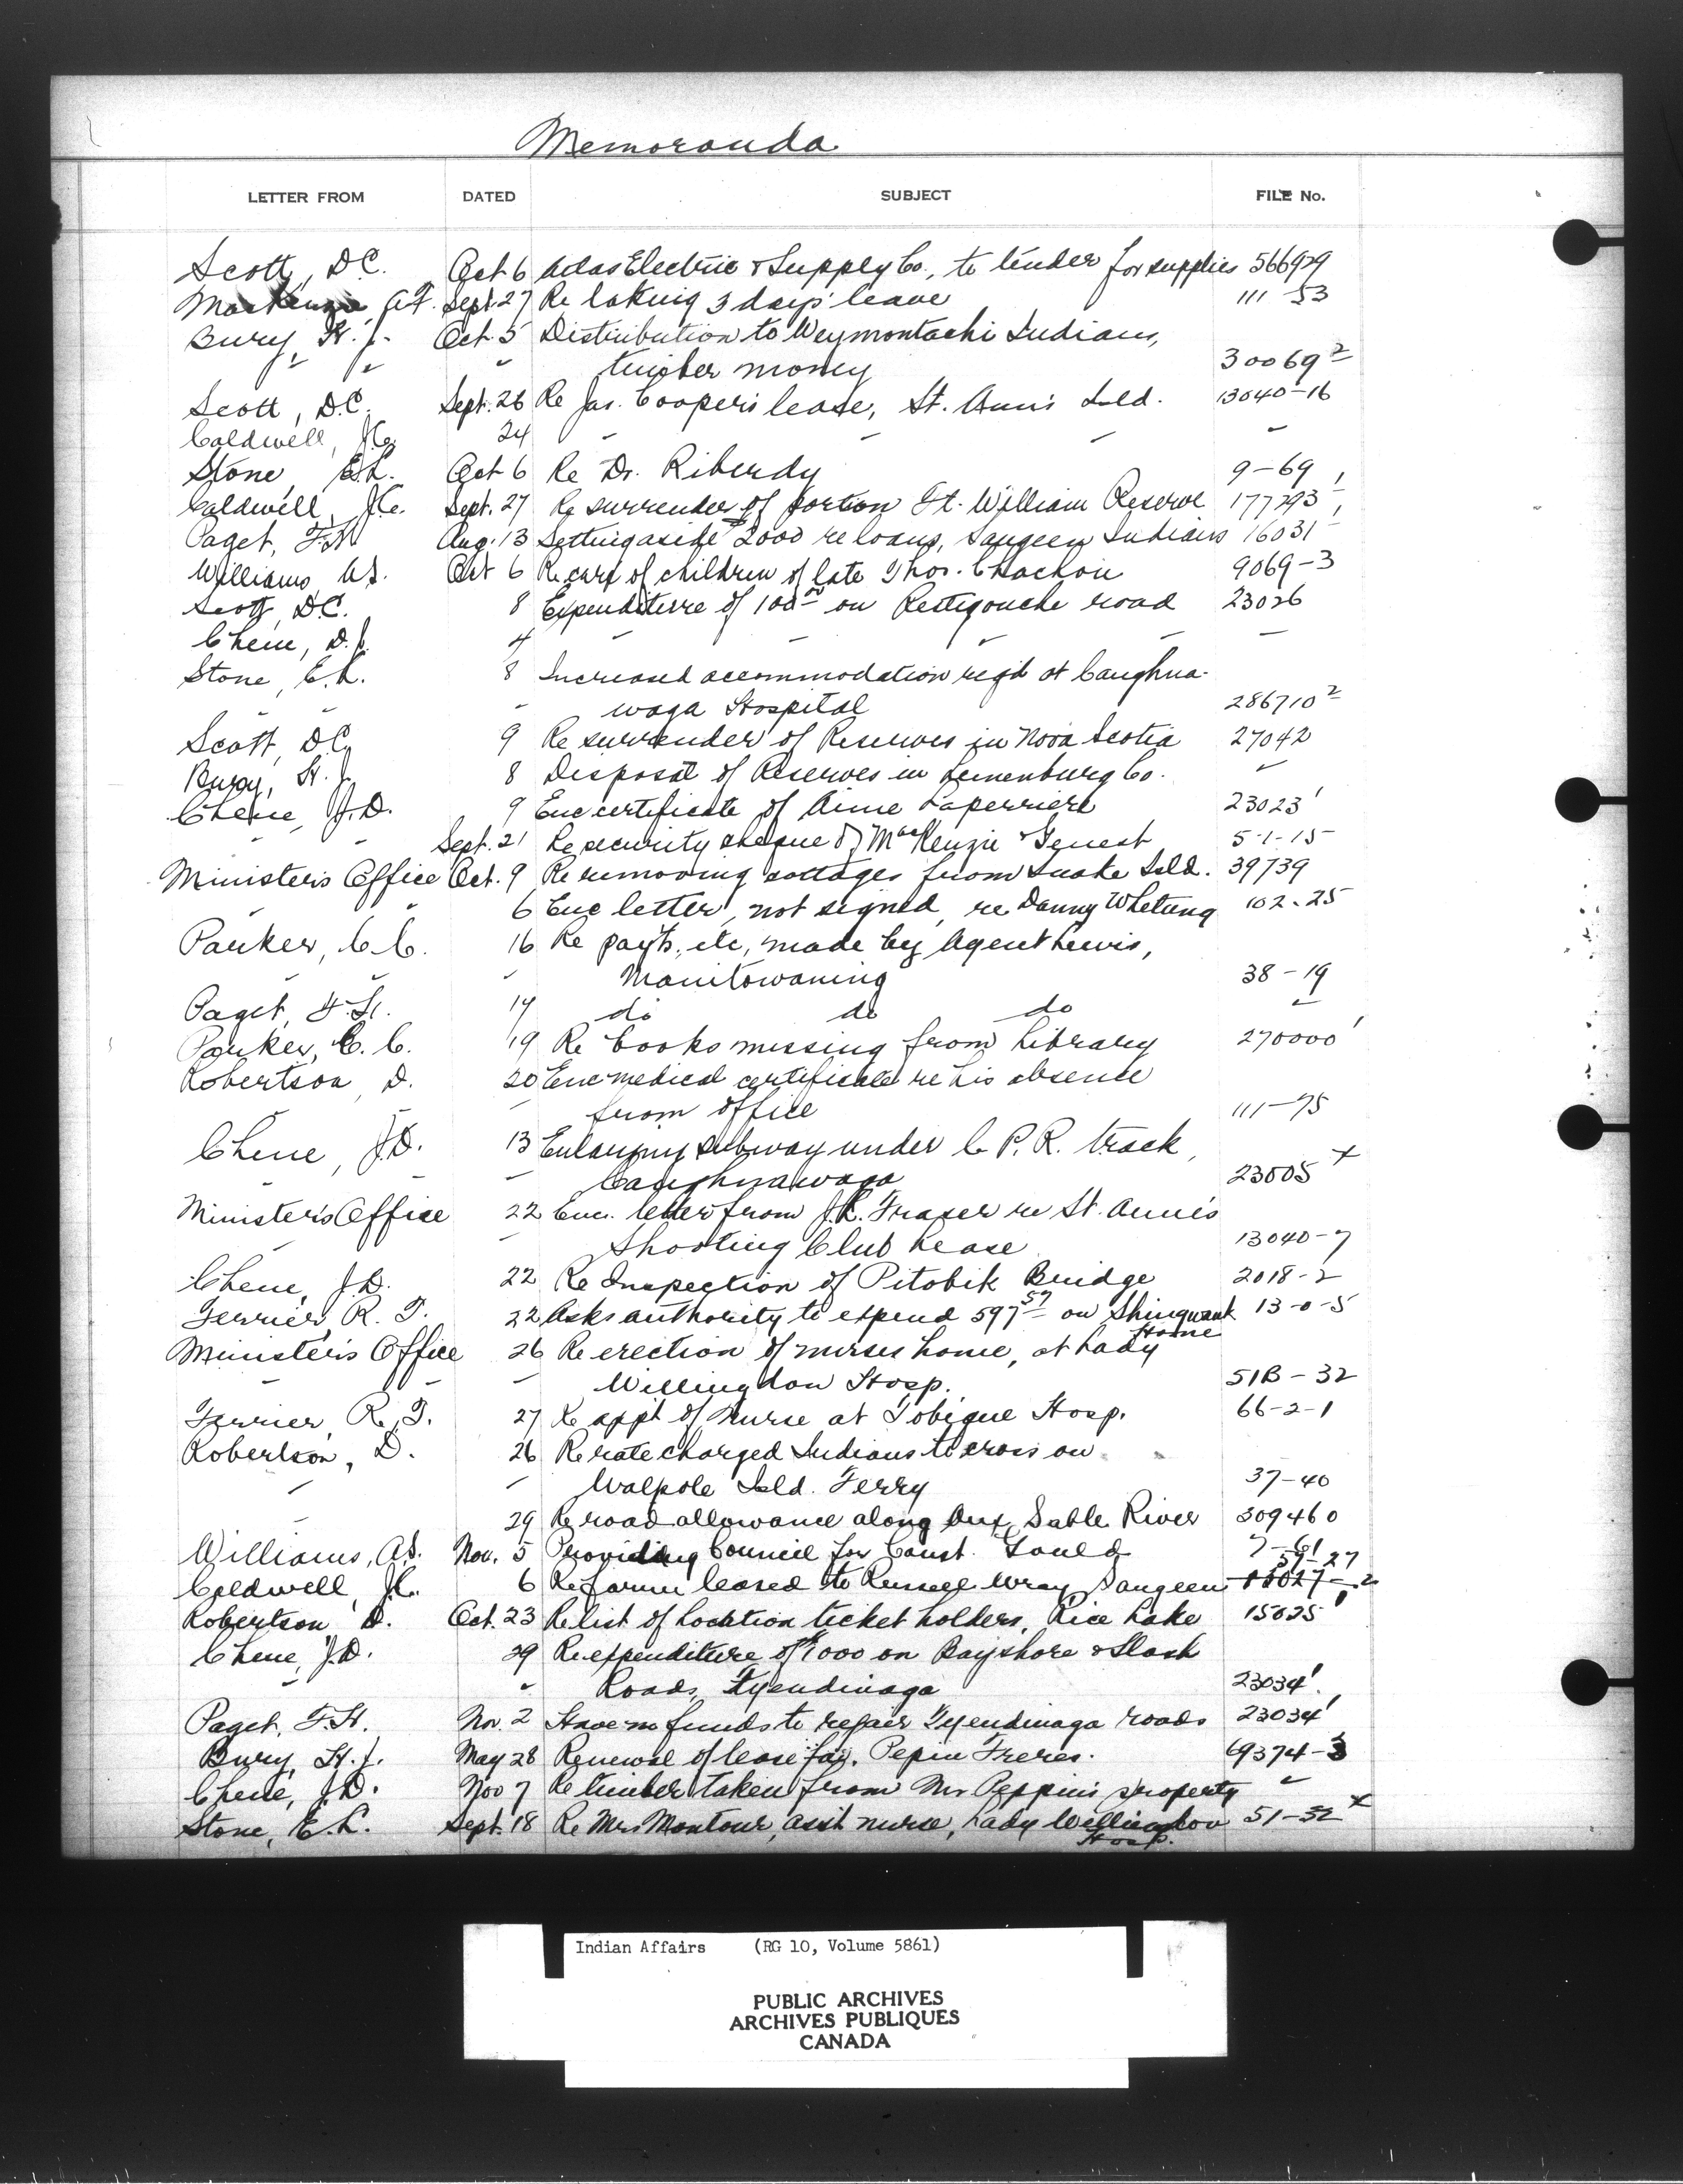 Memoranda
LETTER FROM DATED SUBJECT FILE No.
Scott, D.C. Oct 6 Atlas Electric & Supply Co., to tender for supplies 566929
MacKenzie, A.F. Sept. 27 Re taking 3 days' leave 111-53
Bury, H.J. Oct. 5 Distribution to Weymontachi Indians,
" " " timber money 30069²
Scott, D.C. Sept. 26 Re Jas. Cooper's lease, St. Ann's Isld. 13040-16
Caldwell, J.C. 24 " " " "
Stone, E.L. Oct 6 Re Dr. Riberdy 9-69
Caldwell, J.C. Sept. 27 Re surrender of portion Ft. William Reserve 177293
Paget, F.H. Aug. 13 Setting aside 2000 re loans, Saugeen Indians 16031
Williams, A.S. Oct 6 Re care of children of late Thos. Chachoin 9069-3
Scott, D.C. 8 Expenditure of 100 00 on Restigouche road 23026
Chene, D.J. 4 " " " " "
Stone, E.L. 8 Increased accommodation req'd at Caughna-
" " " waga Hospital 286710²
Scott, D.C. 9 Re surrender of Reserves in Nova Scotia 27042
Bury, H.J. 8 Disposal of Reserves in Lunenburg Co. "
Chene, J.D. 9 Enc certificate of Aime Laperriere 23023'
" " Sept. 21 Re security cheque of MacKenzie & Genest 5-1-15
Minister's Office Oct. 9 Re removing cottages from Snake Isld. 39739
" " 6 Enc letter, not signed, re Danny Whetung 102-25
Parker, C.C. 16 Re payts, etc, made by Agent Lewis,
" " " Manitowaning 38-19
Paget, F.H. 17 do do do "
Parker, C.C. 19 Re books missing from Library 270000'
Robertson, D. 20 Enc medical certificate re his absence
" " " from office 111-75
Chene, J.D. 13 Enlarging subway under C.P.R. track,
" " " Caughnawaga 23005 x
Minister's Office 22 Enc. letter from J.R. Fraser re St. Anne's
" " Shooting Club Lease 13040-7
Chene, J.D. 22 Re Inspection of Pitobik Bridge 2018-2
Ferrier, R.T. 22 Asks authority to expend 597 57 on Shingwauk Home 13-0-5
Minister's Office 26 Re erection of nurses home, at Lady
" " " Willingdon Hosp. 51B-32
Ferrier, R.T. 27 Re appt of Nurse at Tobique Hosp. 66-2-1
Robertson, D. 26 Re rate charged Indians to cross on
" " Walpole Isld. Ferry 37-40
" 29 Re road allowance along Aux Sable River 309460
Williams, A.S. Nov. 5 Providing Council for Const. Gould 7-61
Caldwell, J.C. 6 Re farm leased to Russell Wray, Saugeen 57-27
Robertson, D. Oct. 23 Re list of location ticket holders, Rice Lake 15025'
Chene, J.D. 29 Re expenditure of 1000 on Bayshore & Slash
" " Roads, Tyendinaga 23034'
Paget, F.H. Nov. 2 Have no funds to repair Tyendinaga roads 23034'
Bury, H.J. May 28 Renewal of lease fav. Pepin Freres. 69374-3
Chene, J.D. Nov 7 Re timber taken from Mr Peppin's property "
Stone, E.L. Sept. 18 Re Mrs Montour, ass't nurse, Lady Willingdon Hosp. 51-32 x
Indian Affairs (RG 10, Volume 5861)
PUBLIC ARCHIVES
ARCHIVES PUBLIQUES
CANADA